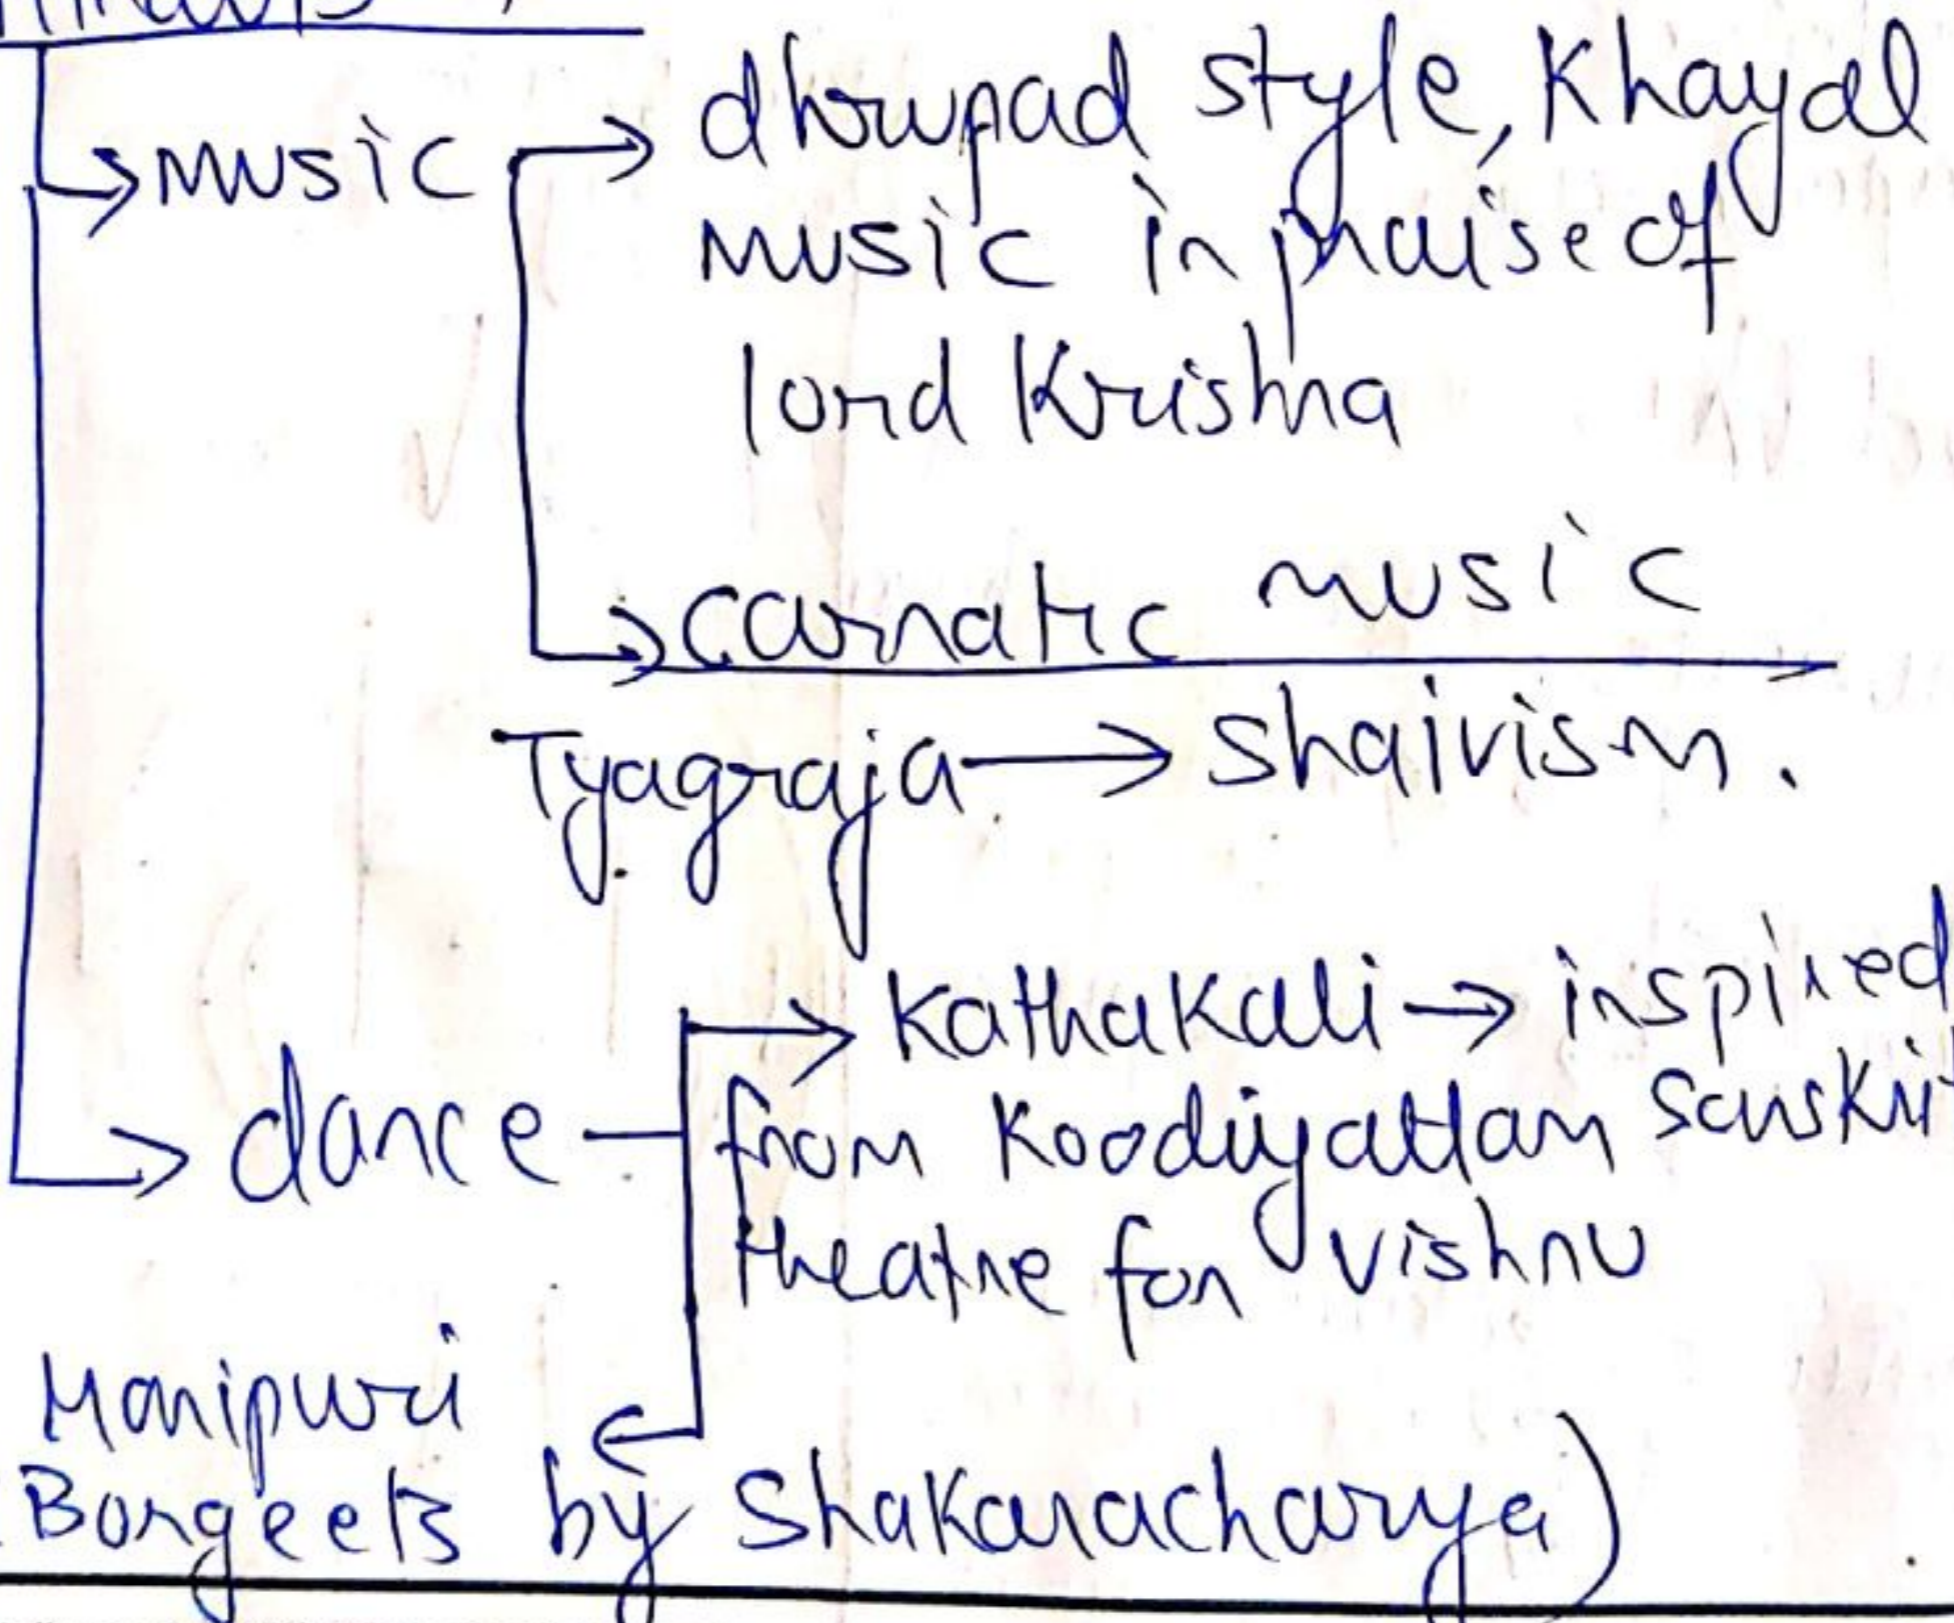 music → dhrupad style, Khayal
music in praise of
lord Krishna
→ carnatic music
Tyagraja → Shaivism.
dance → Kathakali → inspired
from Koodiyattam Sanskrit
theatre for Vishnu
Manipuri
Borgeets by Shakaracharya)